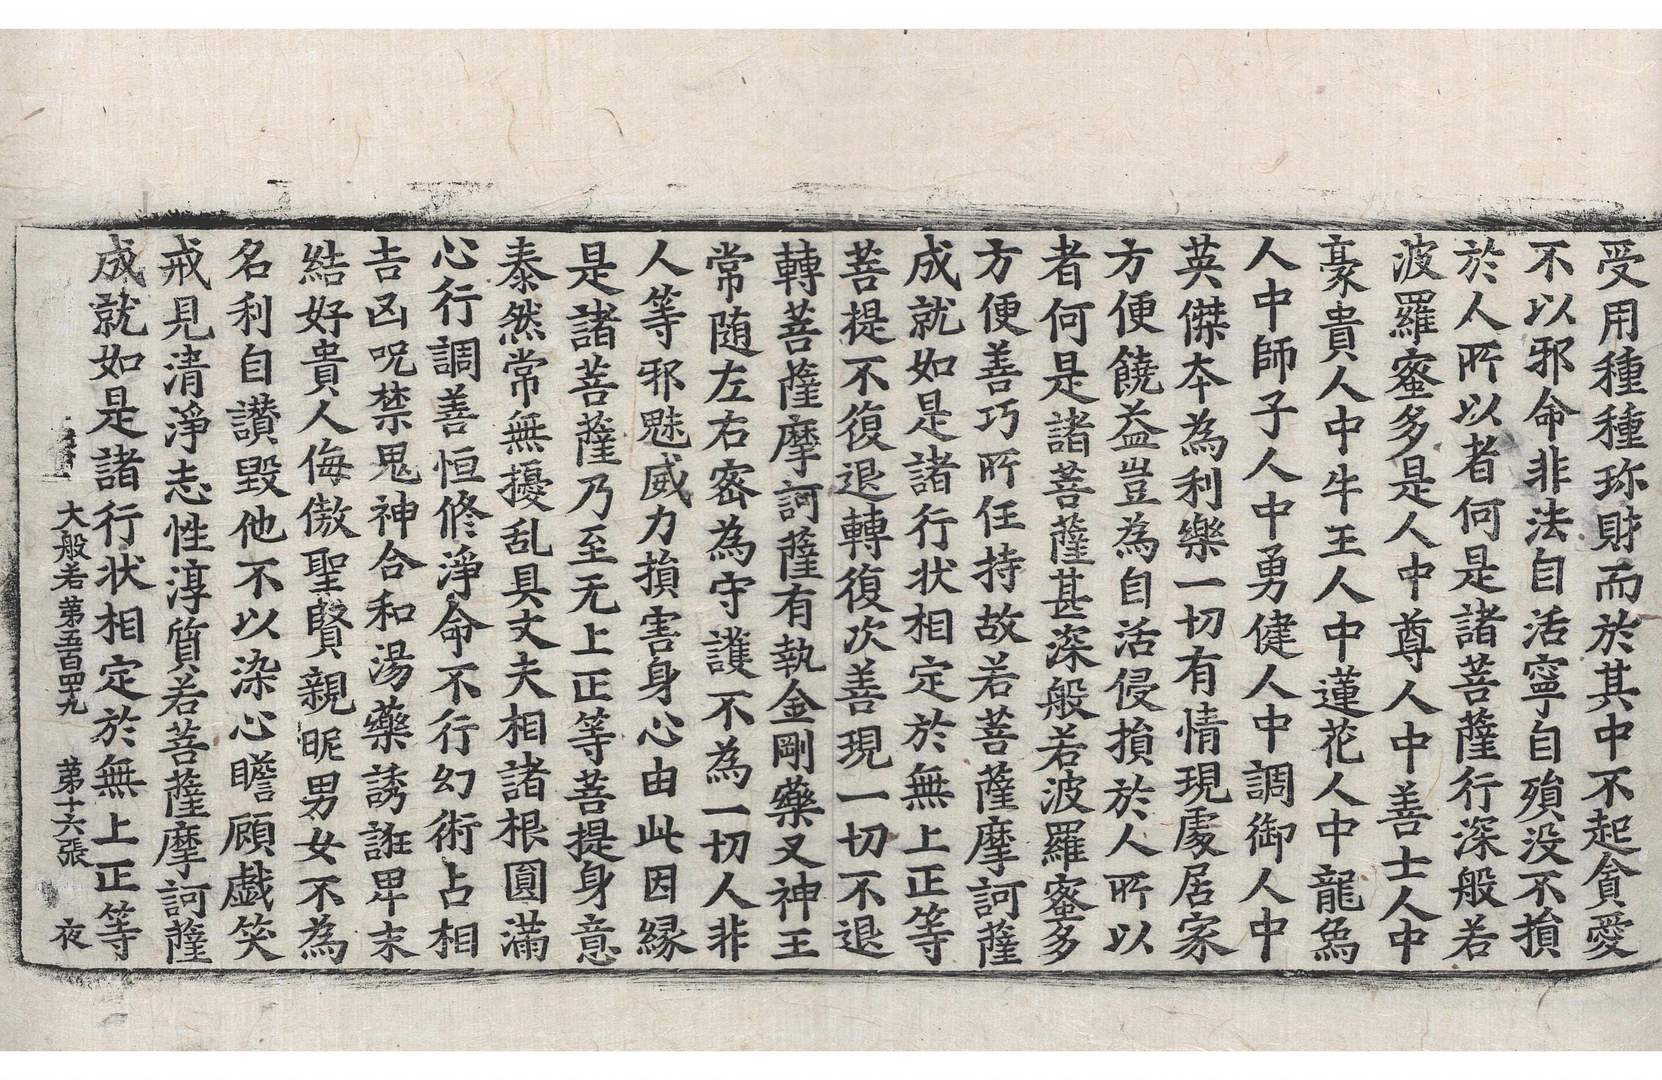 受用種種珎財而於其中不起貪愛
不以邪命非法自活寧自殞没不損
於人所以者何是諸菩薩行深般若
波羅蜜多是人中尊人中善士人中
豪貴人中牛王人中蓮花人中龍象
人中師子人中勇健人中調御人中
英傑本為利樂一切有情現處居家
方便饒益豈為自活侵損於人所以
者何是諸菩薩甚深般若波羅蜜多
方便善巧所任持故若菩薩摩訶薩
成就如是諸行状相定於無上正等
菩提不復退轉復次善現一切不退
轉菩薩摩訶薩有執金剛藥叉神王
常随左右密為守護不為一切人非
人等邪魅威力損害身心由此因縁
是諸菩薩乃至无上正等菩提身意
泰然常無擾乱具丈夫相諸根圓滿
心行調善恒修淨命不行幻術占相
吉凶呪禁鬼神合和湯藥誘誑卑末
結好貴人侮傲聖賢親昵男女不為
名利自讃毀他不以染心瞻顧戯笑
戒見清淨志性淳質若菩薩摩訶薩
成就如是諸行状相定於無上正等
大般若第五百四九 第十六張 夜